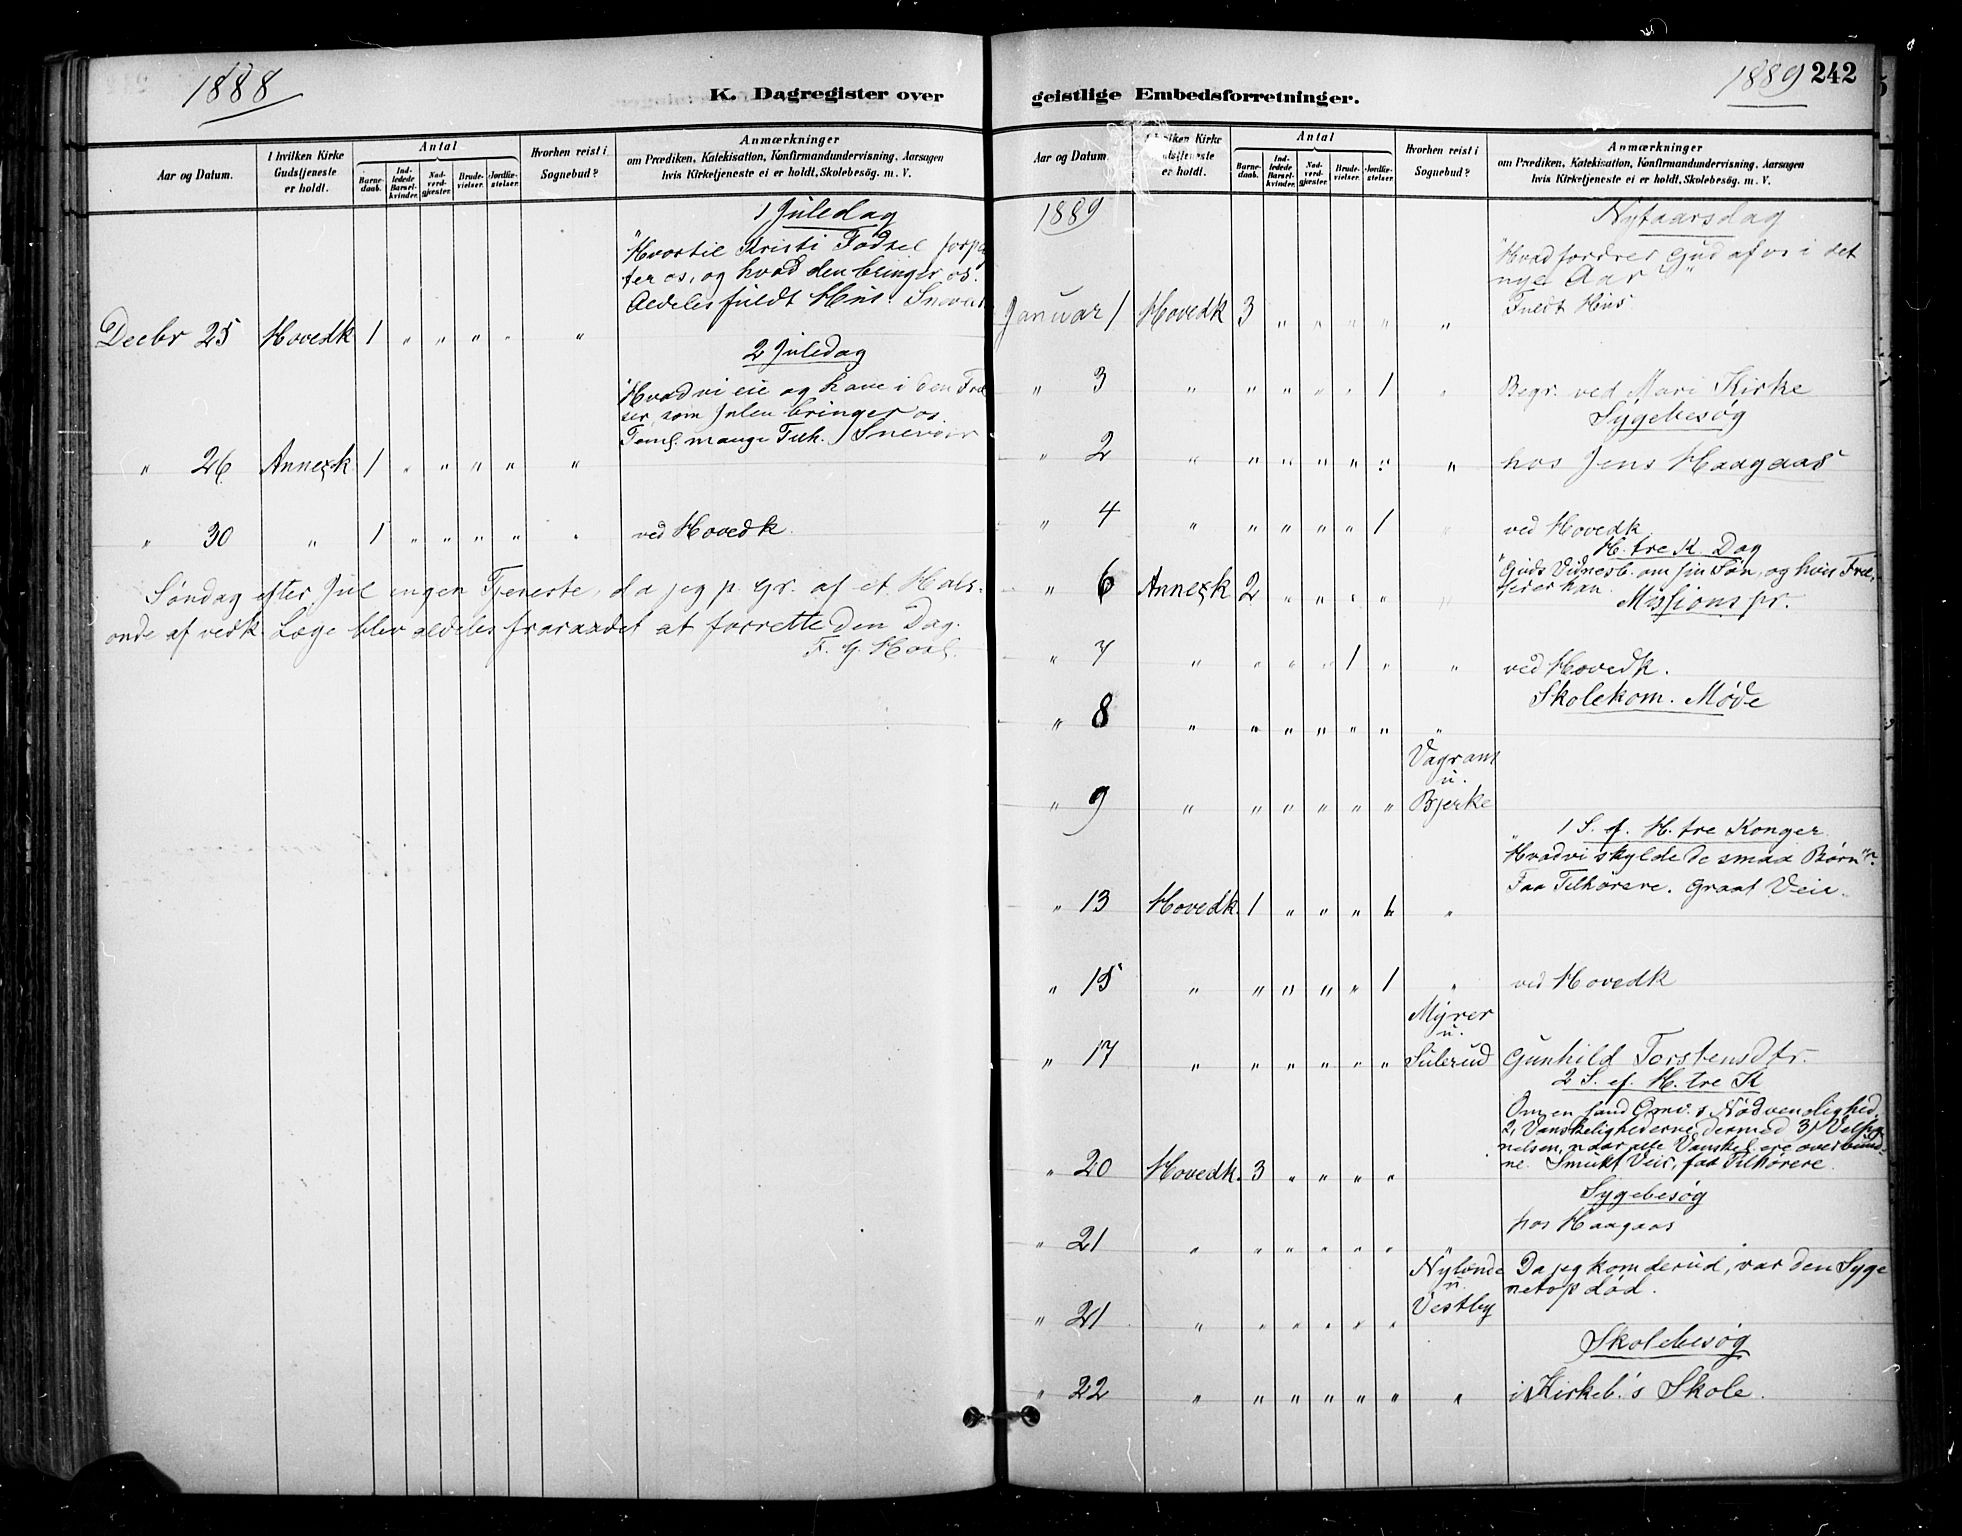 1888
K. Dagregister over
Aar og Datum.
I hvilken Kirke Gudstjeneste er holdt.
Antal
Barnedaab.
Indledede Barselkvinder.
Nadverdgjester.
Brudevielser.
Jordfæstelser.
Hvorhen reist i Sognebud?
Anmærkninger
om Prædiken, Katekisation, Konfirmandundervisning, Aarsagen
hvis Kirketjeneste ei er holdt, Skolebesøg. m. V.
1 Juledag
"Hvortil Kristi Fødsel
ter os, og hvad den bringer os".
Aldeles fuldt Hus.
Decbr 25 Hovedk 1 " " " " "
2 Juledag
"Hvad vi eie og have i den
ser, som Julen bringer os
Teml. mange Tilh.
" 26 Annexk 1 " " " " "
" 30 " 1 " " " " " ved Hovedk.
Søndag efter Jul ingen Tjeneste, da jeg p. Gr. af et Hals-
onde af vedk. Læge blev aldeles fraraadet at forrette den Dag.
F. G.
1889 242
geistlige Embedsforretninger.
Aar og Datum.
I hvilken Kirke Gudstjeneste er holdt.
Antal
Barnedaab.
Indledede Barselkvinder.
Nadverdgjester.
Brudevielser.
Jordfæstelser.
Hvorhen reist i Sognebud?
Anmærkninger
om Prædiken, Katekisation, Konfirmandundervisning, Aarsagen
hvis Kirketjeneste ei er holdt, Skolebesøg. m. V.
1889
Nytaarsdag
"Hvad fordrer Gud af os i det
nye Aar"
Fuldt Hus
Januar 1 Hovedk 3 " " " " "
" 3 " " " " " 1 " Begr. ved Mari Kirke
Sygebesøg
" 2 " " " " " " " hos Jens Haagaas
" 4 " " " " " 1 " ved Hovedk
H. tre K. Dag
"Guds Vidnesb. om sin Søn, og hvis
" 6 Annexk 2 " " " " "
Missionspr.
" 7 " " " " 1 " " ved Hovedk.
Skolekom. Møde
" 8 " " " " " " "
Vagram
u.
" 9 " " " " " " Bjerke
1 S. ef. H. tre Konger.
"Hvad vi skylde de smaa Børn".
Faa Tilhørere. Graat Veir.
" 13 Hovedk. 1 " " " "
" 15 " " " " " 1 " ved Hovedk
Myrer
u.
" 17 " " " " " " Sulerud Gunhild Torstensdtr.
2 S. ef. H. tre K
Om en sand Omv. s Nødvendighed,
2, Vanskelighederne dermed 3)
nelsen, naar alle Vanskel. ere overvund-
ne. Smukt Veir, faa Tilhørere.
" 20 Hovedk. 3 " " " "
Sygebesøg
hos Haagaas
" 21 " " " " " " "
Nylende
u.
Vestby
Da jeg kom derud, var den Syge
netop død.
" 21 " " " " " "
Skolebesøg
" 22 " " " " " " " i Kirkeb.'s Skole.